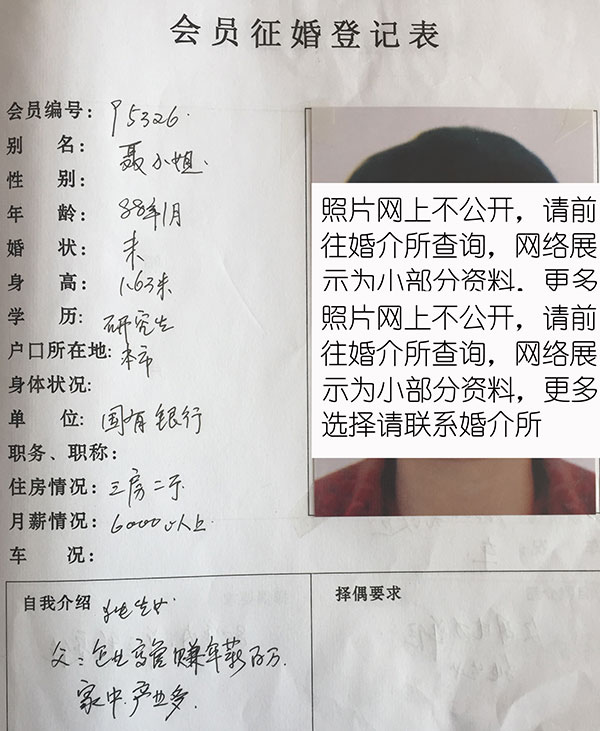 会员征婚登记表
会员编号: P5326.
别 名: 聂小姐.
性 别:
年 龄: 88年1月
婚 状: 未
身 高: 1.63米
学 历: 研究生
户口所在地: 本市
身体状况:
单 位: 国有银行
职务、职称:
住房情况: 三房二厅
月薪情况: 6000以上
车 况:
照片网上不公开，请前
往婚介所查询，网络展
示为小部分资料，更多
照片网上不公开，请前
往婚介所查询，网络展
示为小部分资料，更多
选择请联系婚介所
自我介绍 独生女
父：企业高管赚年薪百万.
家中产业多.
择偶要求